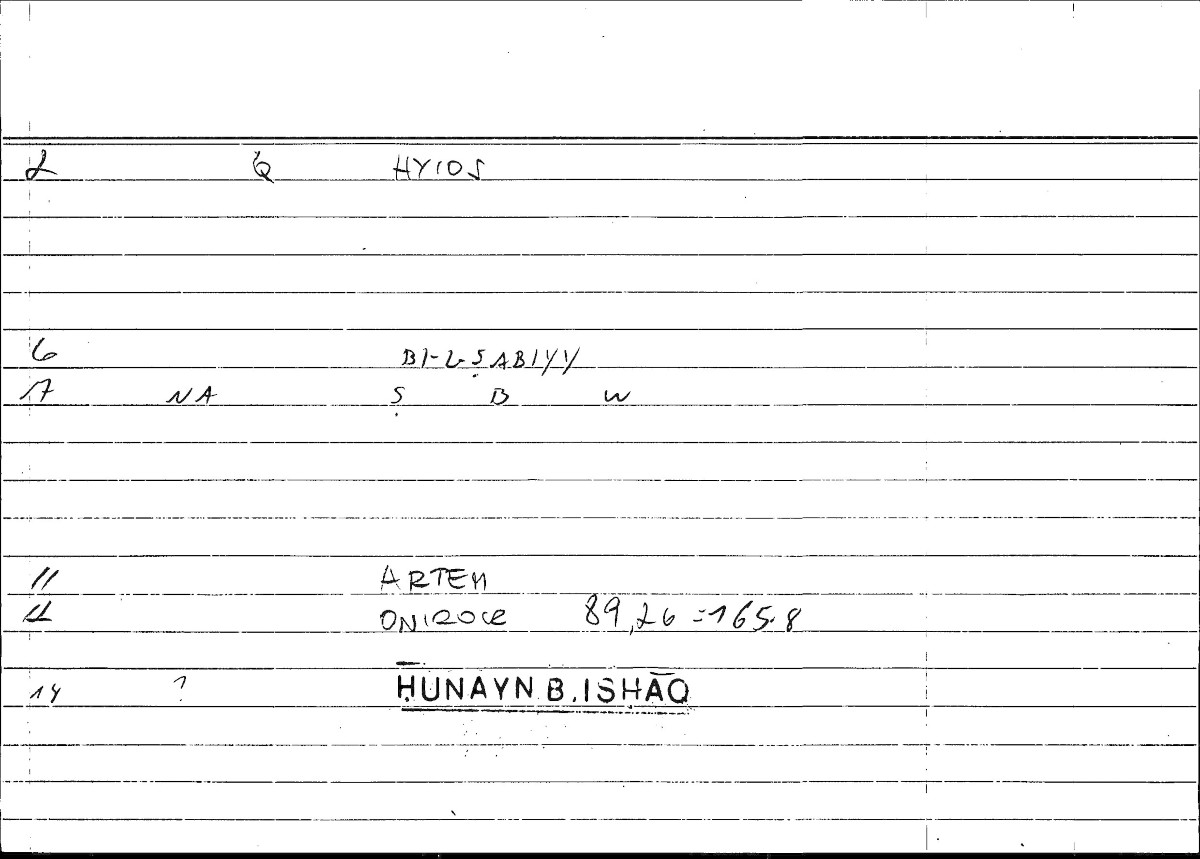 2 Q HYIOS
6 BI-L-ṢABIYY
17 NA Ṣ B W
11 ARTEM
12 ONIROCR 89,26 = 165.8
14 ? ḤUNAYN B. ISḤĀQ